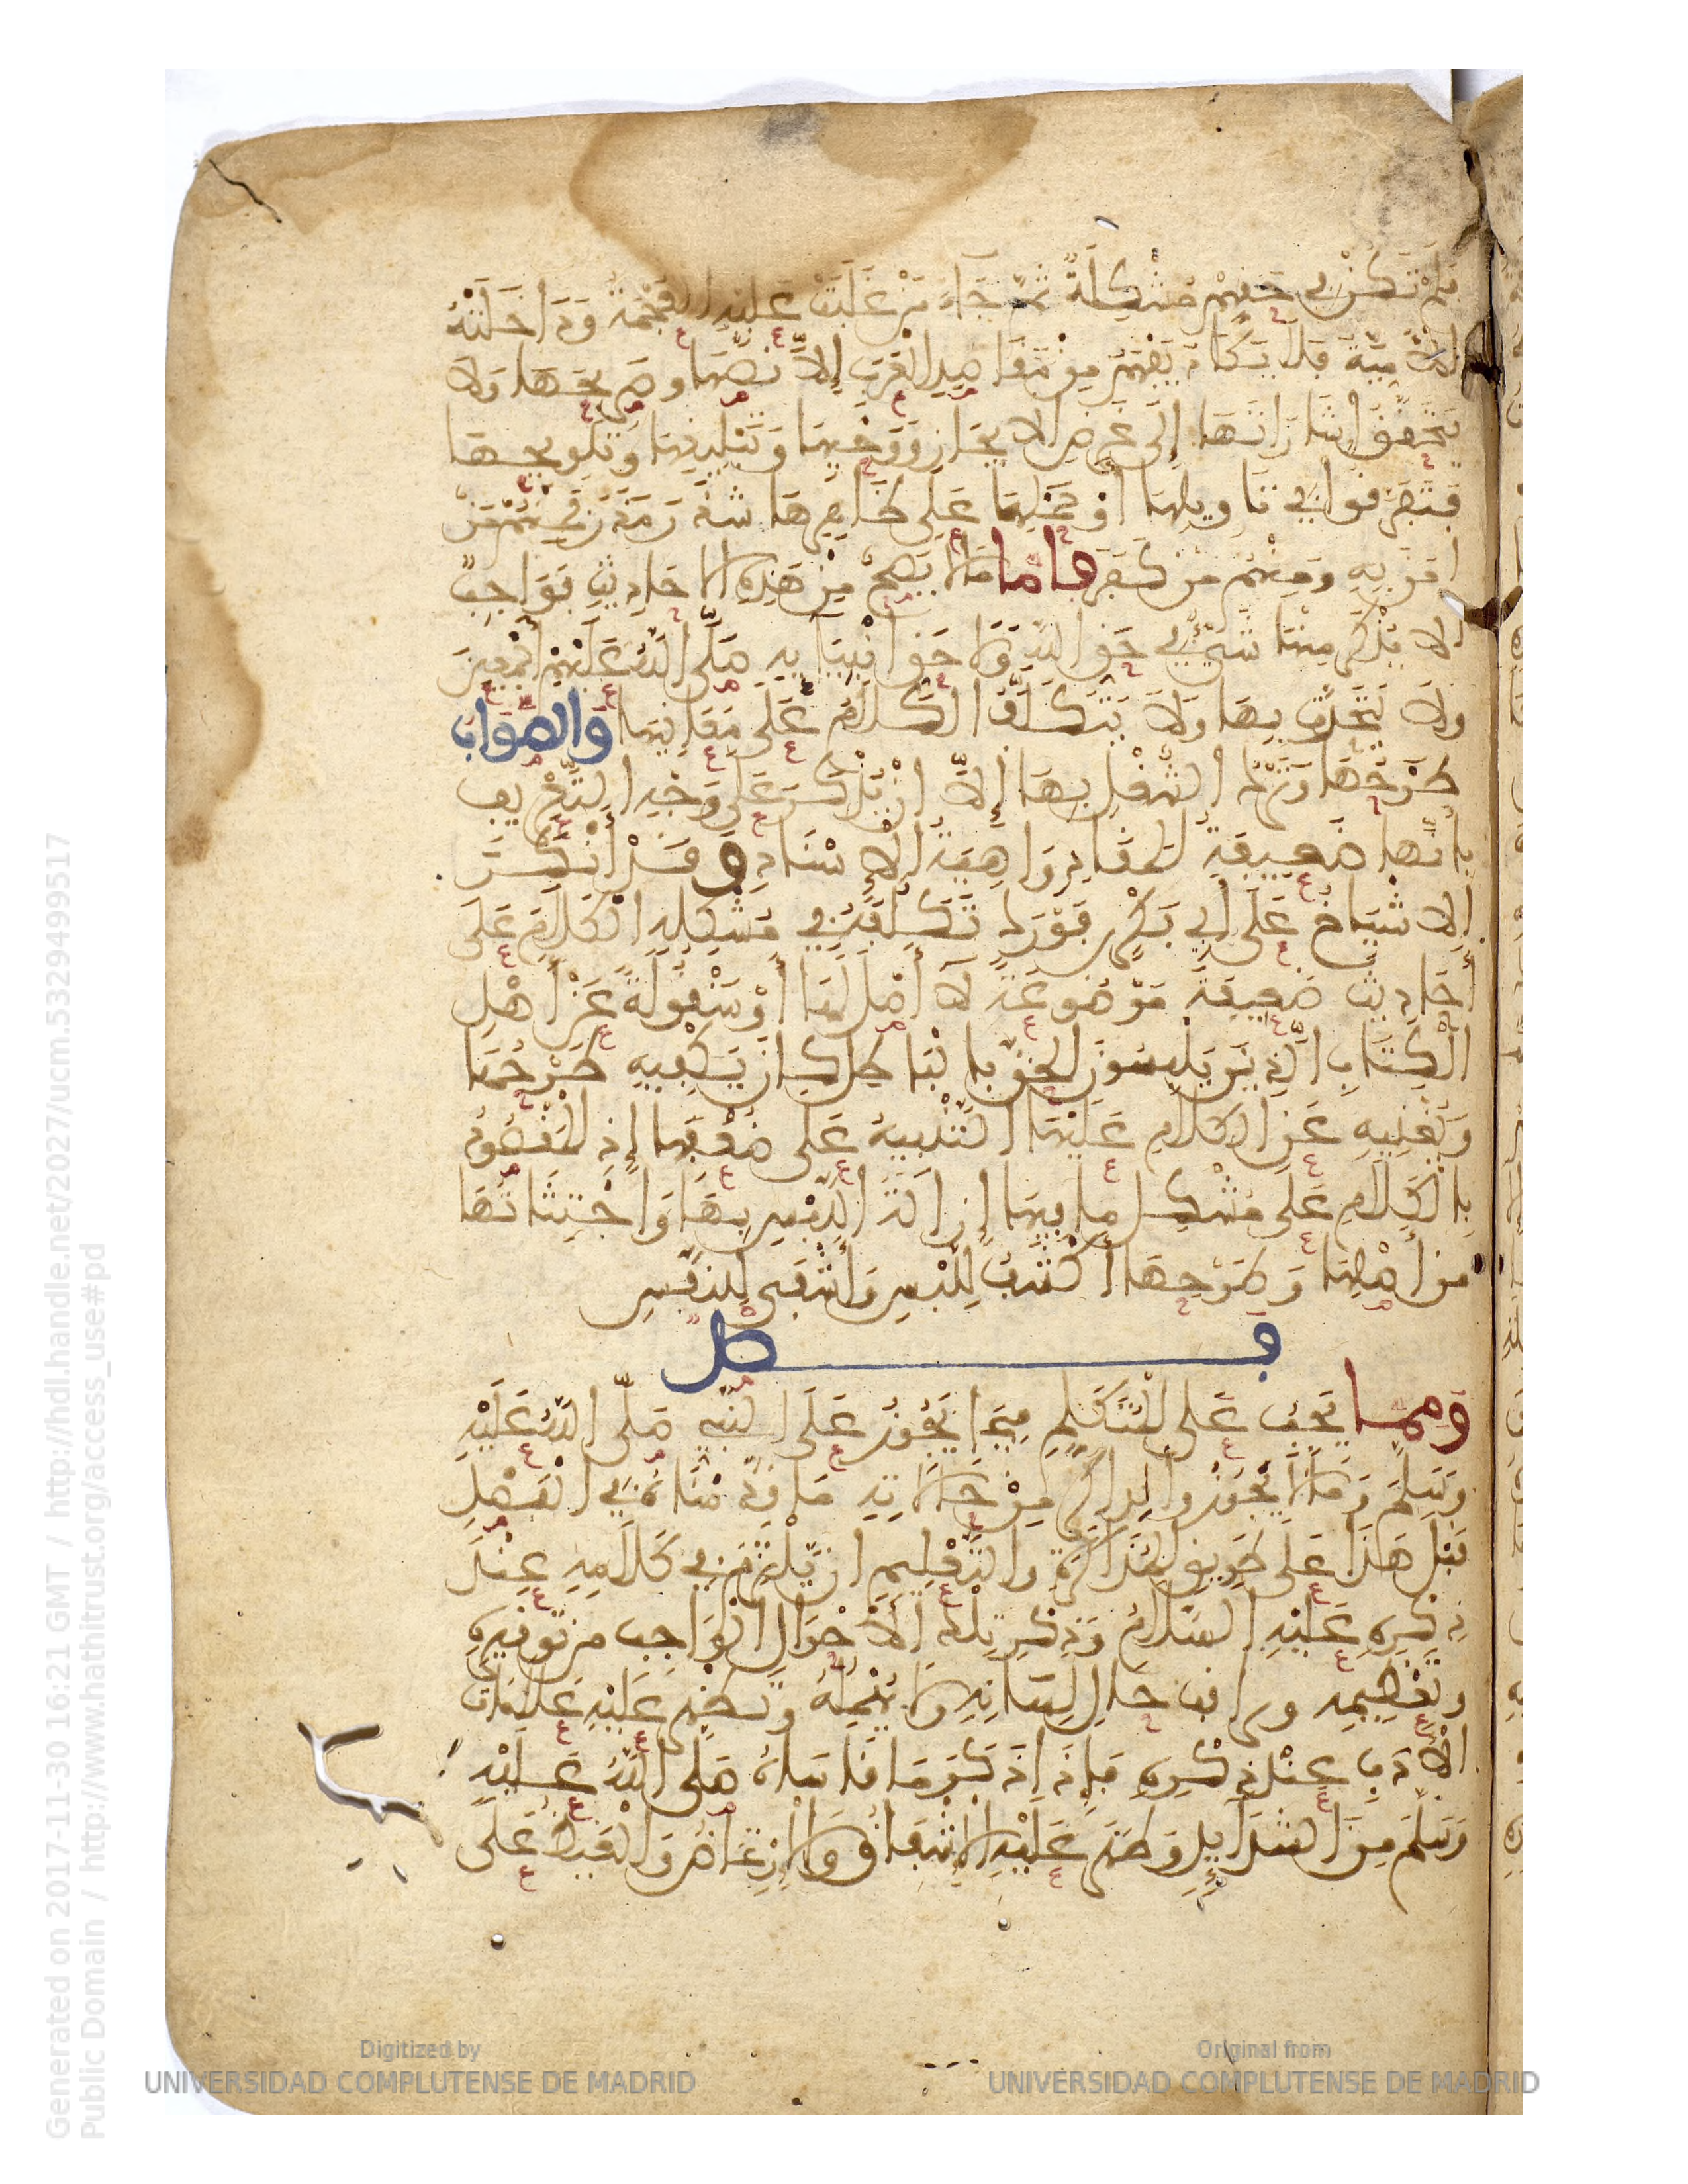 فلم تكن في حقهم مشكلة ثم جاء من غلبت عليه العجمة وداخلته
الأمية فلا يكاد يفهم من مقاصد العرب إلا نصها وصريحها ولا
يتحقق إشاراتها إلى غرض الإيجاز ووحيها وتبليغها وتلويحها
فتفرقوا في تاويلها أو حملها على ظاهرها شذر مذر فمنهم من
امن به ومنهم من كفر فاما ما لا يصح من هذه الاحاديث فواجب
ألا يذكر منها شيء في حق الله ولا حق انبيايه صلى الله عليهم أجمعين
ولا يتحدث بها ولا يتكلف الكلام على معانيها والصواب
طرحها وترك الشغل بها إلا ان تذكر على وجه التعريف
بأنها ضعيفة المقاد واهية الإسناد وقد أنكر
الأشياخ على أبي بكر بن فورك تكلفه في مشكله الكلام على
أحاديث ضعيفة موضوعة لا أصل لها أو منقولة عن أهل
الكتاب الذين يلبسون الحق بالباطل كان يكفيه طرحها
ويغنيه عن الكلام عليها التنبيه على ضعفها إذ المقصود
بالكلام على مشكل ما فيها إزالة اللبس بها واجتثاثها
من أصلها وطرحها أكشف للبس وأشفى للنفس
فصل
ومما يجب على المتكلم فيما يجوز على النبي صلى الله عليه
وسلم وما لا يجوز والذاكر من حالاته ما قدمناه في الفصل
قبل هذا على طريق المذاكرة والتعليم ان يلتزم في كلامه عند
ذكره عليه السلام وذكر تلك الأحوال الواجب من توقيره
وتعظيمه ويراقب حال لسانه ولا يهمله وتظهر عليه علامات
الأدب عند ذكره فإذا ذكر ما قاساه صلى الله عليه
وسلم من الشدايد وظهر عليه الاشفاق والارتماض والغيظ على
Generated on 2017-11-30 16:21 GMT / http://hdl.handle.net/2027/ucm.5329499517
Public Domain / http://www.hathitrust.org/access_use#pd
Digitized by
UNIVERSIDAD COMPLUTENSE DE MADRID
Original from
UNIVERSIDAD COMPLUTENSE DE MADRID